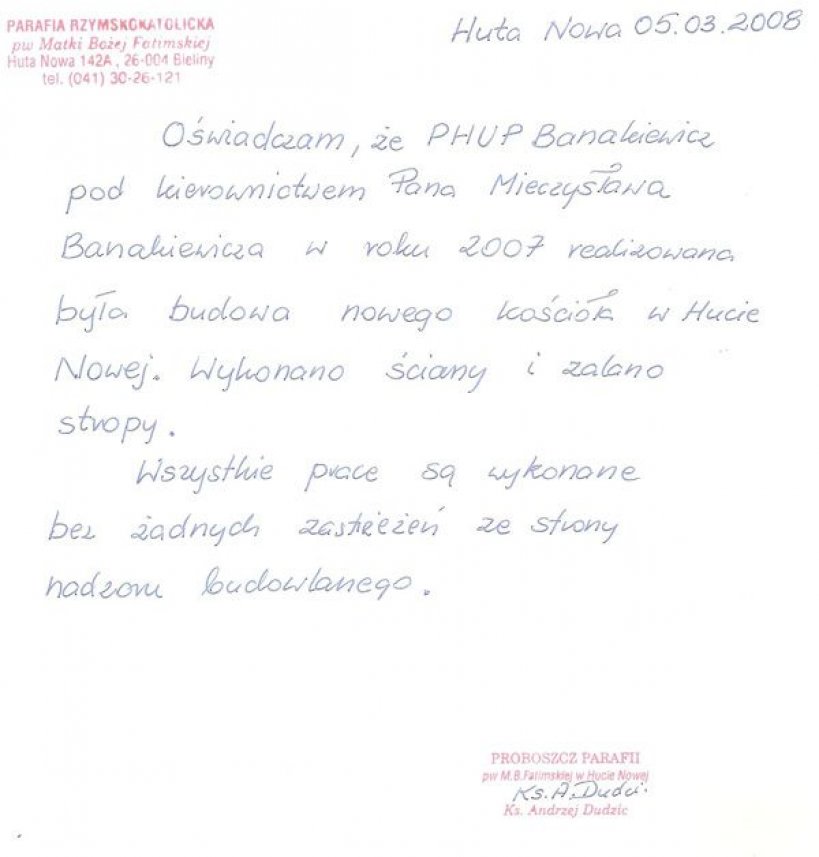 PARAFIA RZYMSKOKATOLICKA
pw Matki Bożej Fatimskiej
Huta Nowa 142A, 26-004 Bieliny
tel. (041) 30-26-121
Huta Nowa 05.03.2008
Oświadczam, że PHUP Banakiewicz
pod kierownictwem Pana Mieczysława
Banakiewicza w roku 2007 realizowana
była budowa nowego kościoła w Hucie
Nowej. Wykonano ściany i zalano
stropy.
Wszystkie prace są wykonane
bez żadnych zastrzeżeń ze strony
nadzoru budowlanego.
PROBOSZCZ PARAFII
pw M.B.Fatimskiej w Hucie Nowej
Ks. A. Dudzic
Ks. Andrzej Dudzic